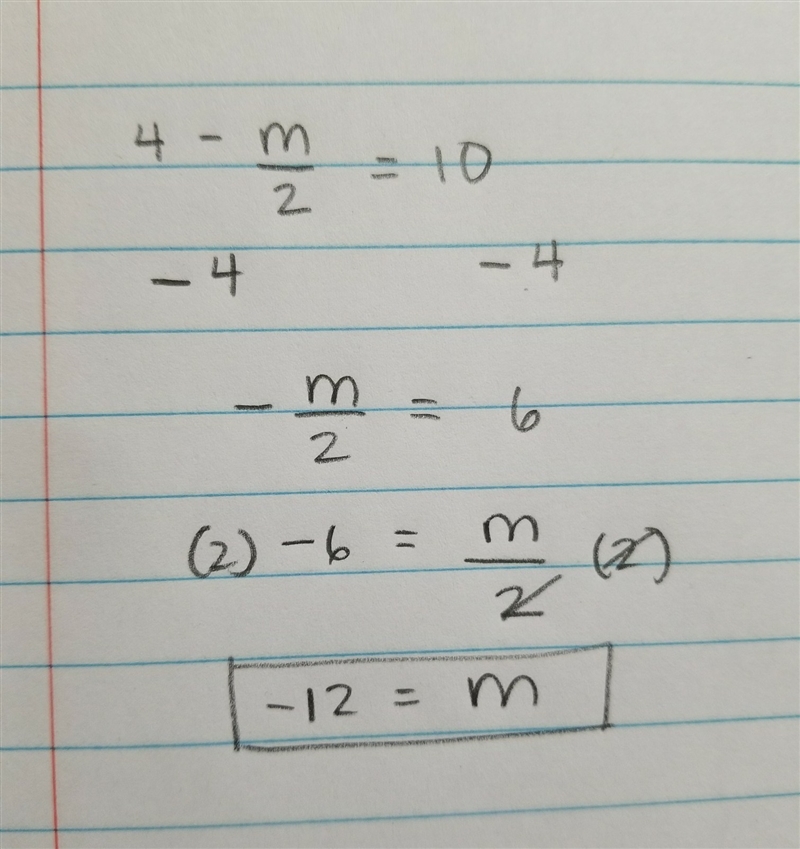 4 - m/2 = 10
-4 -4
- m/2 = 6
(2) -6 = m/2 (2)
-12 = m